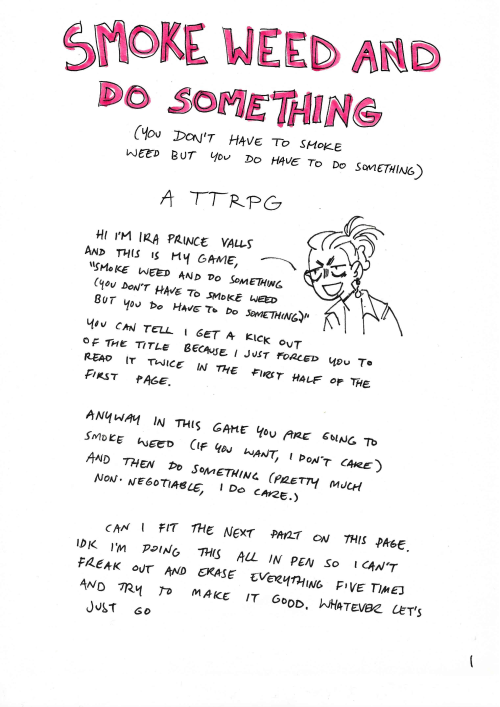 SMOKE WEED AND
DO SOMETHING
(YOU DON'T HAVE TO SMOKE
WEED BUT YOU DO HAVE TO DO SOMETHING)
A TTRPG
HI I'M IRA PRINCE VALLS
AND THIS IS MY GAME,
"SMOKE WEED AND DO SOMETHING
(YOU DON'T HAVE TO SMOKE WEED
BUT YOU DO HAVE TO DO SOMETHING)"
YOU CAN TELL I GET A KICK OUT
OF THE TITLE BECAUSE I JUST FORCED YOU TO
READ IT TWICE IN THE FIRST HALF OF THE
FIRST PAGE.
ANYWAY IN THIS GAME YOU ARE GOING TO
SMOKE WEED (IF YOU WANT, I DON'T CARE)
AND THEN DO SOMETHING (PRETTY MUCH
NON-NEGOTIABLE, I DO CARE.)
CAN I FIT THE NEXT PART ON THIS PAGE.
IDK I'M DOING THIS ALL IN PEN SO I CAN'T
FREAK OUT AND ERASE EVERYTHING FIVE TIMES
AND TRY TO MAKE IT GOOD. WHATEVER LET'S
JUST GO
1